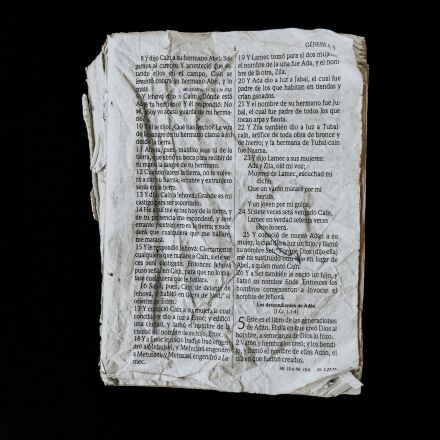 5
GÉNESIS 4, 5
8 Y dijo Caín a su hermano Abel: Sal-
gamos al campo. Y aconteció que es-
tando ellos en el campo, Caín se
levantó contra su hermano Abel, y lo
9 Y Jehová dijo a Caín: ¿Dónde está
Abel tu hermano? Y él respondió: No
sé. ¿Soy yo acaso guarda de mi herma-
10 Y él le dijo: ¿Qué has hecho? La voz
de la sangre de tu hermano clama a mí
desde la tierra.
11 Ahora, pues, maldito seas tú de la
tierra, que abrió su boca para recibir de
tu mano la sangre de tu hermano.
12 Cuando labres la tierra, no te volverá
a dar su fuerza; errante y extranjero
serás en la tierra.
13 Y dijo Caín a Jehová: Grande es mi
castigo para ser soportado.
14 He aquí me echas hoy de la tierra, y
de tu presencia me esconderé, y seré
errante y extranjero en la tierra; y suce-
derá que cualquiera que me hallare,
me matará.
15 Y le respondió Jehová: Ciertamente
cualquiera que matare a Caín, siete ve-
ces será castigado. Entonces Jehová
puso señal en Caín, para que no lo ma-
tase cualquiera que le hallara.
16 Salió, pues, Caín de delante de
Jehová, y habitó en tierra de Nod, al
oriente de Edén.
17 Y conoció Caín a su mujer, la cual
concibió y dio a luz a Enoc; y edificó
una ciudad, y llamó el nombre de la
ciudad del nombre de su hijo, Enoc.
18 Y a Enoc le nació Irad, e Irad engen-
dró a Mehujael, y Mehujael engendró
a Metusael, y Metusael engendró a La-
mec.
19 Y Lamec tomó para sí dos mujeres;
el nombre de la una fue Ada, y el nom-
bre de la otra, Zila.
20 Y Ada dio a luz a Jabal, el cual fue
padre de los que habitan en tiendas y
crían ganados.
21 Y el nombre de su hermano fue Ju-
bal, el cual fue padre de todos los que
tocan arpa y flauta.
22 Y Zila también dio a luz a Tubal-
caín, artífice de toda obra de bronce y
de hierro; y la hermana de Tubal-caín
fue Naama.
23 Y dijo Lamec a sus mujeres:
Ada y Zila, oíd mi voz;
Mujeres de Lamec, escuchad mi
dicho:
Que un varón mataré por mi
herida,
Y un joven por mi golpe.
24 Si siete veces será vengado Caín,
Lamec en verdad setenta veces
siete lo será.
25 Y conoció de nuevo Adán a su
mujer, la cual dio a luz un hijo, y llamó
su nombre Set: Porque Dios (dijo ella)
me ha sustituido otro hijo en lugar de
Abel, a quien mató Caín.
26 Y a Set también le nació un hijo, y
llamó su nombre Enós. Entonces los
hombres comenzaron a invocar el
nombre de Jehová.
Los descendientes de Adán
(1 Cr. 1.1-4)
5 Este es el libro de las generaciones
de Adán. El día en que creó Dios al
hombre, a semejanza de Dios lo hizo.
2 Varón y hembra los creó; y los bendi-
jo, y llamó el nombre de ellos Adán, el
día en que fueron creados.